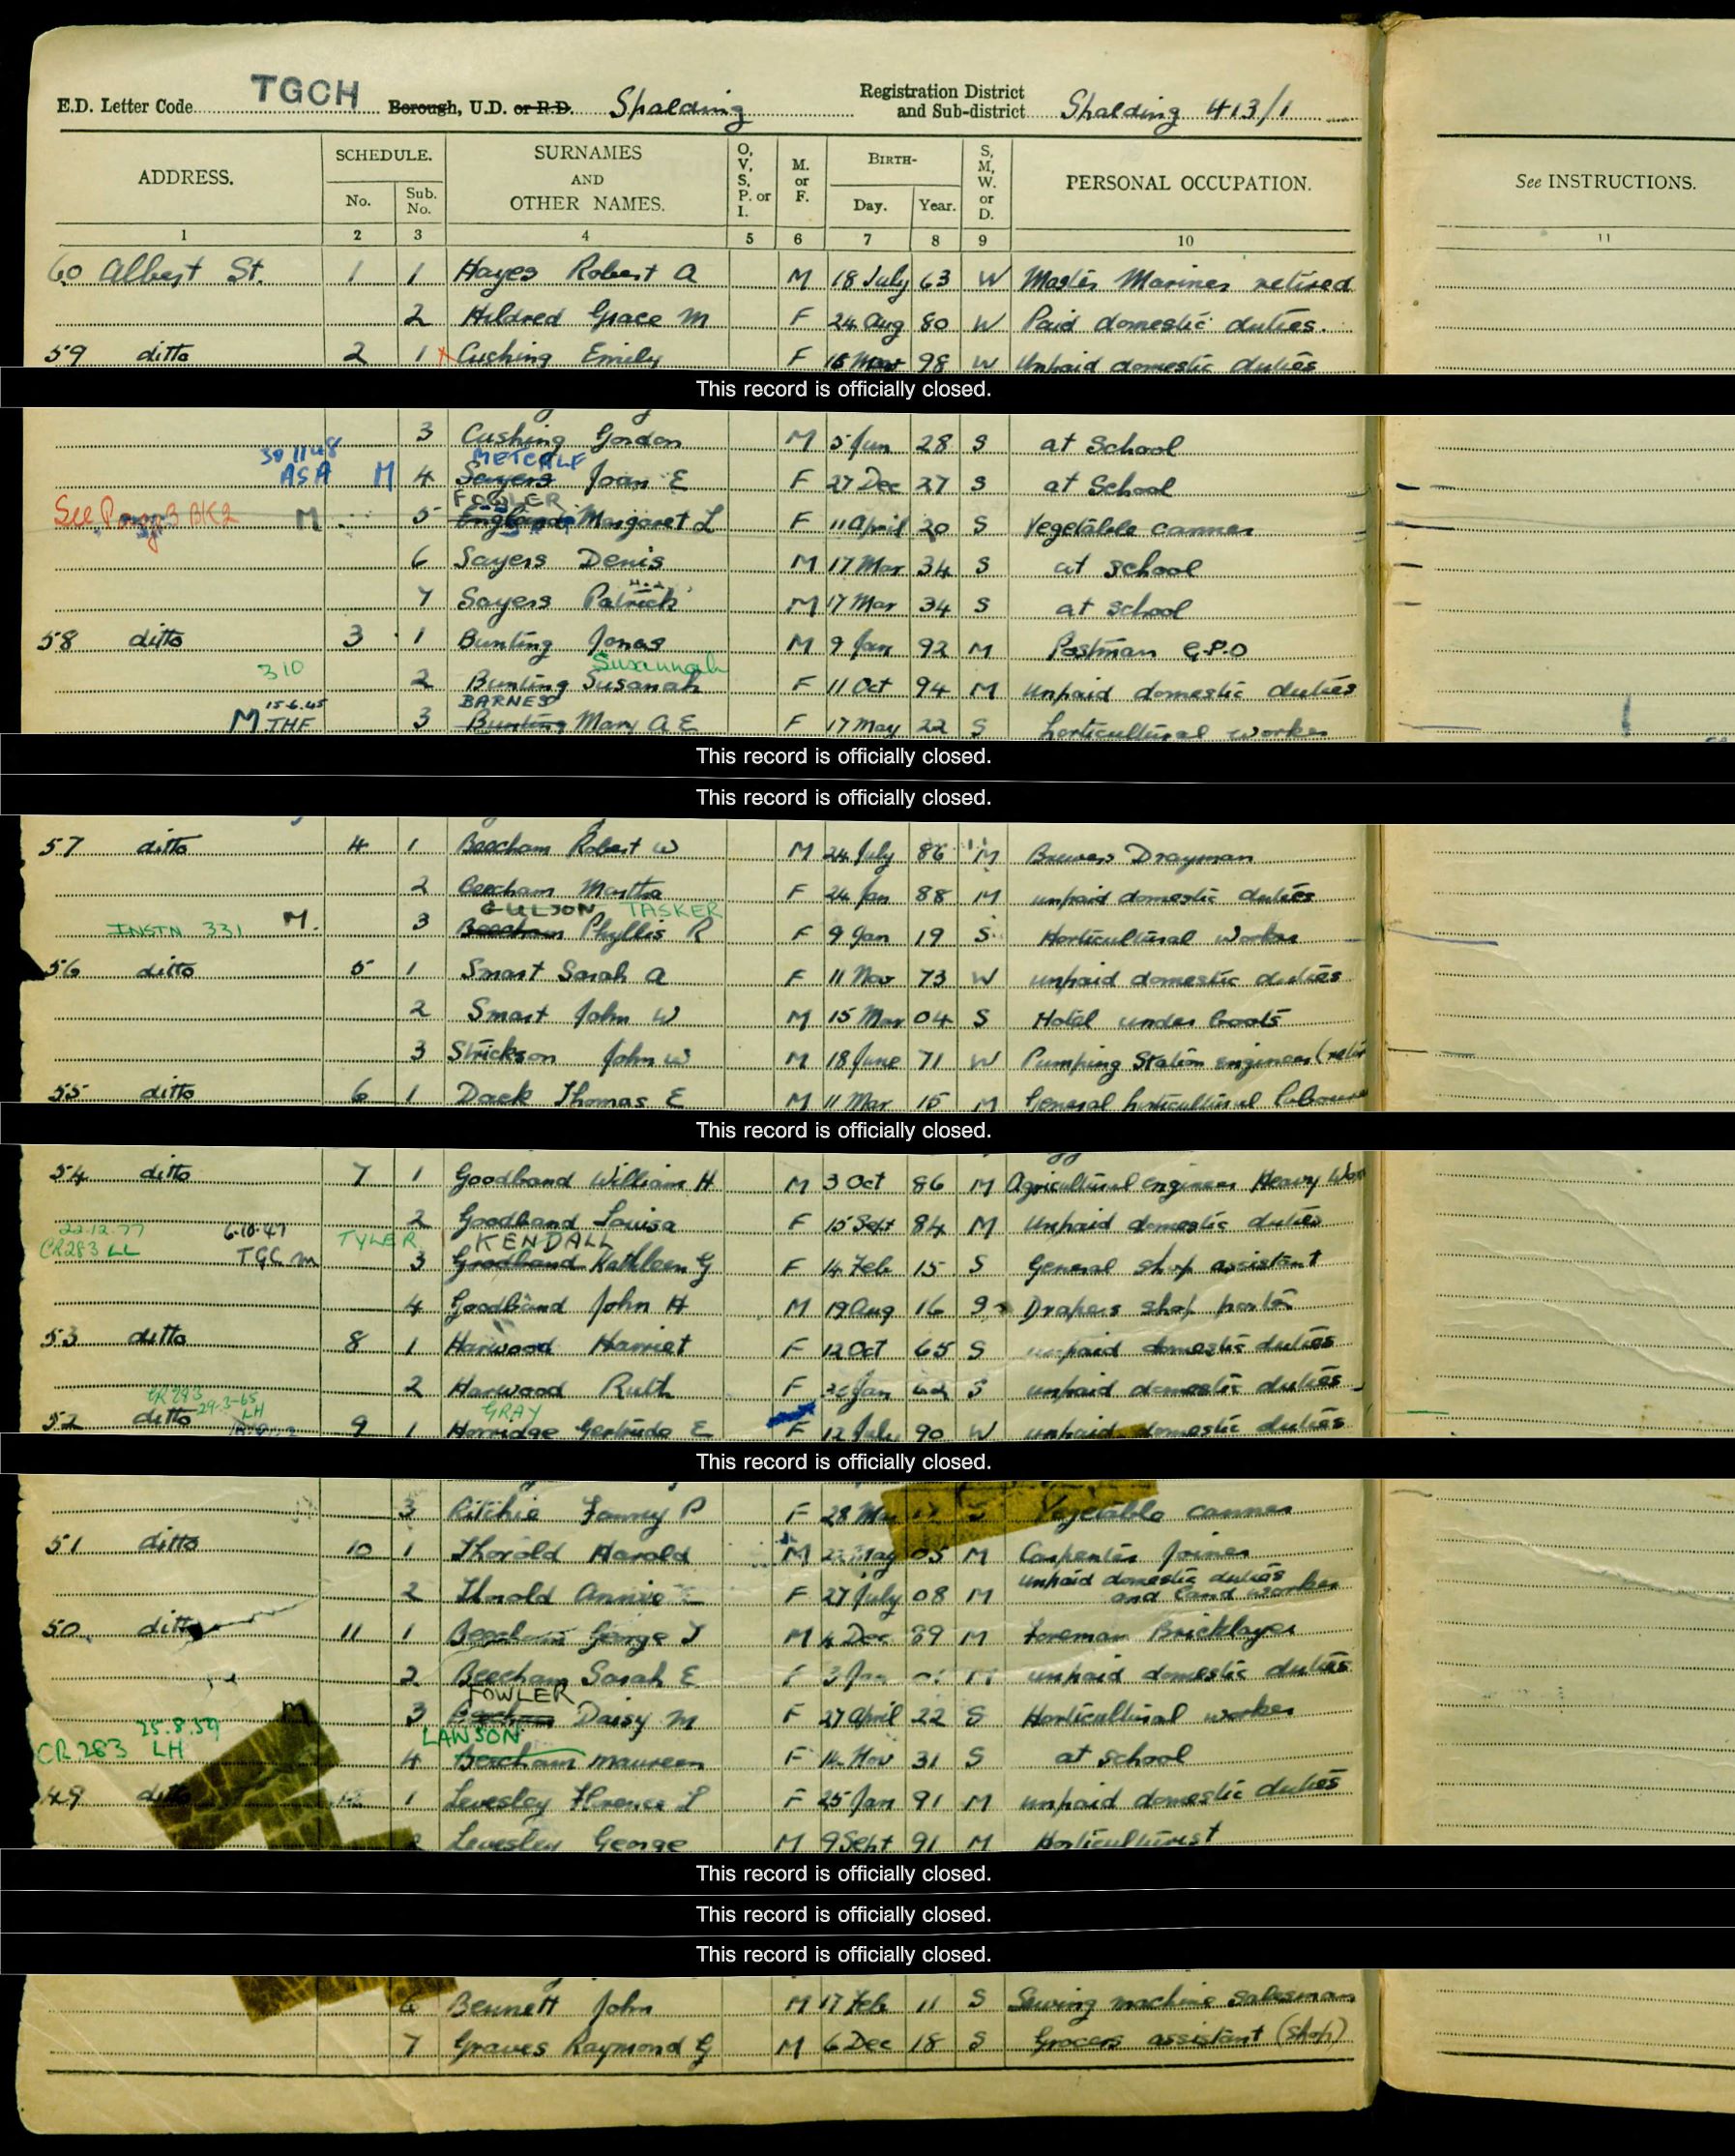 E.D. Letter Code TGCH Borough, U.D. or R.D. Spalding Registration District and Sub-district Spalding 413/1
ADDRESS. SCHEDULE. SURNAMES AND OTHER NAMES. O, V, S, P. or I. M. or F. BIRTH- S, M, W. or D. PERSONAL OCCUPATION. See INSTRUCTIONS.
No. Sub. No. Day. Year.
1 2 3 4 5 6 7 8 9 10 11
60 Albert St. 1 1 Hayes Robert A M 18 July 63 W Master Mariner retired
2 Hildred Grace M F 24 Aug 80 W Paid domestic duties.
59 ditto 2 1 Cushing Emily F 15 Mar 98 W Unpaid domestic duties
This record is officially closed.
3 Cushing Gordon M 5 Jun 28 S at School
METCALF
ASA M 4 Sayers Joan E F 27 Dec 27 S at School
FOWLER
See Page 3 BK2 M 5 Margaret L F 11 April 20 S Vegetable canner
6 Sayers Denis M 17 Mar 34 S at School
7 Sayers Patrick M 17 Mar 34 S at school
58 ditto 3 1 Bunting Jonas M 9 Jan 92 M Postman G.P.O
310 Susannah
2 Bunting Susanah F 11 Oct 94 M Unpaid domestic duties
15.6.45 BARNES
M THF 3 Bunting Mary A E F 17 May 22 S horticultural worker
This record is officially closed.
This record is officially closed.
57 ditto 4 1 Beecham Robert W M 24 July 86 M Brewers Drayman
2 Beecham Martha F 24 Jan 88 M unpaid domestic duties
GULSON TASKER
INSTN 331 M. 3 Beecham Phyllis R F 9 Jan 19 S Horticultural worker
56 ditto 5 1 Smart Sarah A F 11 Nov 73 W unpaid domestic duties
2 Smart John W M 15 Mar 04 S Hotel under boots
3 Strickson John W M 18 June 71 W Pumping Station engineer (retir
55 ditto 6 1 Dack Thomas E M 11 Mar 15 M General horticultural labourer
This record is officially closed.
54 ditto 7 1 Goodband William H M 3 Oct 86 M Agricultural engineer Heavy Wor
2 Goodband Louisa F 15 Sept 84 M Unpaid domestic duties
22.12.77 6.10.47 TYLER KENDALL
CR283 LL TGC M 3 Goodband Kathleen G F 14 Feb 15 S General shop assistant
4 Goodband John H M 19 Aug 16 S Drapers shop porter
53 ditto 8 1 Harwood Harriet F 12 Oct 65 S unpaid domestic duties
2 Harwood Ruth F Jan 62 S unpaid domestic duties
CR283 29-3-65 LH GRAY
52 ditto 9 1 Horridge Gertrude E F 12 July 90 W unpaid domestic duties
This record is officially closed.
3 Ritchie Fanny P F 28 S Vegetable canner
51 ditto 10 1 Thorold Harold M May 05 M Carpenter Joiner
2 Thorold Annie E F 27 July 08 M Unpaid domestic duties and land worker
50 ditto 11 1 Beecham George T M 4 Dec 89 M Foreman Bricklayer
2 Beecham Sarah E F 3 Jan unpaid domestic duties
FOWLER
M 3 Beecham Daisy M F 27 April 22 S Horticultural worker
25.8.59 LAWSON
CR 283 LH 4 Beecham Maureen F 14 Nov 31 S at school
49 ditto 12 1 Levesley Florence L F 25 Jan 91 M unpaid domestic duties
2 Levesley George M 9 Sept 91 M Horticulturist
This record is officially closed.
This record is officially closed.
This record is officially closed.
6 Bennett John M 17 Feb 11 S Sewing machine Salesman
7 Graves Raymond G M 6 Dec 18 S Grocers assistant (shop)